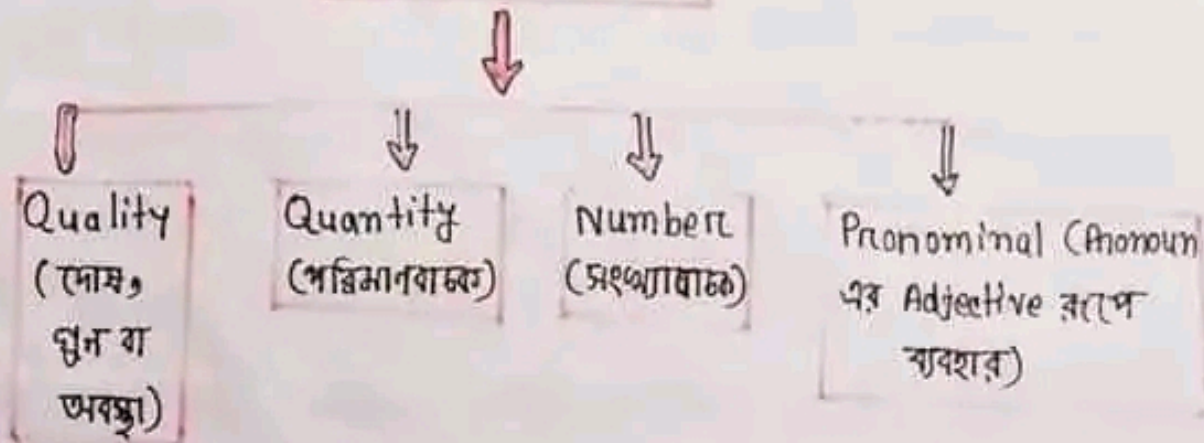 Quality
(দোষ,
গুন বা
অবস্থা)
Quantity
(পরিমানবাচক)
Number
(সংখ্যাবাচক)
Pronominal (Pronoun
এর Adjective রূপে
ব্যবহার)